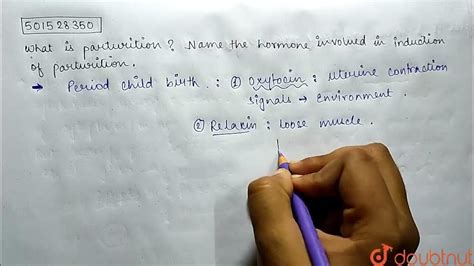 501528350
What is parturition? Name the hormone involved in induction
of parturition.
→ Period child birth. : ① Oxytocin : uterine contraction
signals → Environment.
② Relaxin : loose muscle.
doubtnut